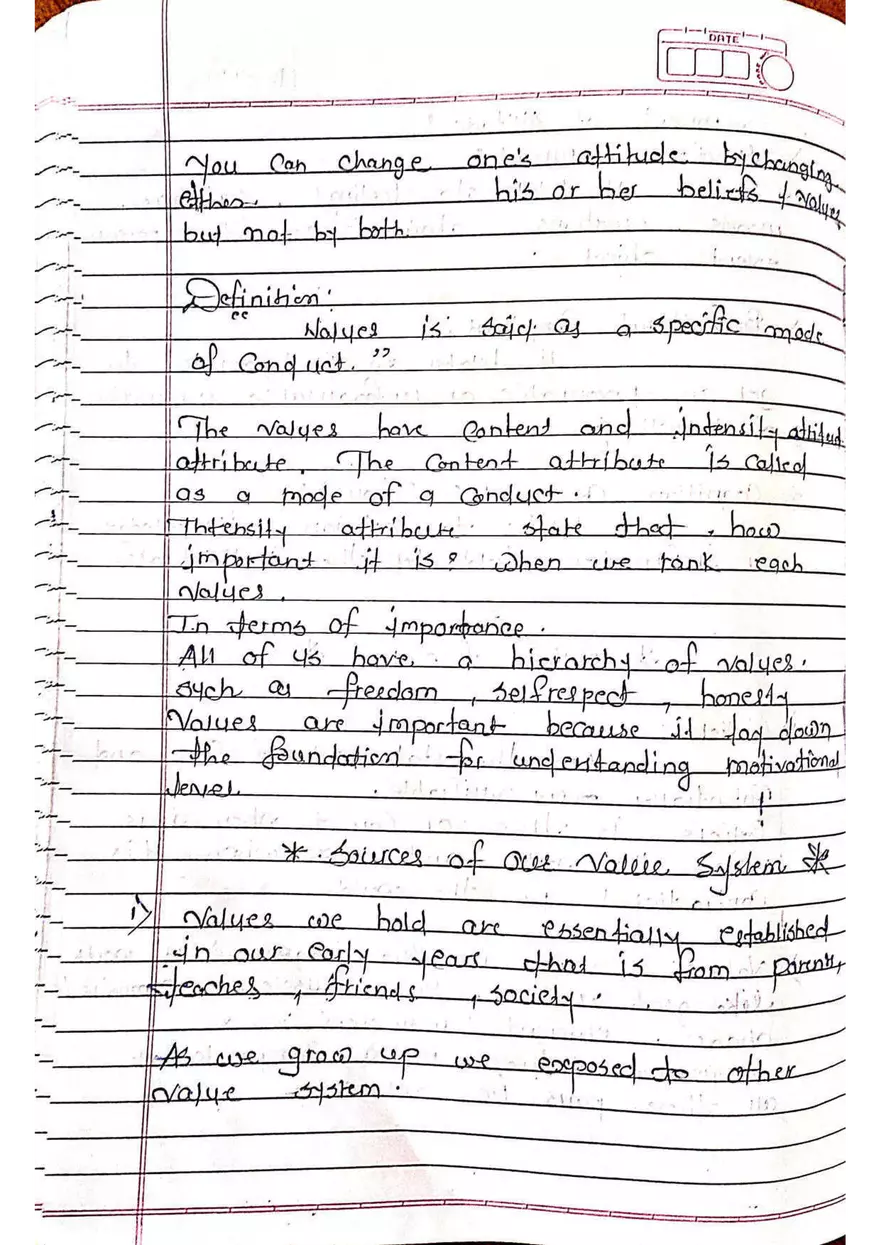 DATE
You can change one's attitude by changing
either his or her beliefs & values
but not by both.
Definition:
"Values is said as a specific mode
of conduct."
The values have content and intensity attitud
attribute. The content attribute is called
as a mode of a conduct.
Intensity attribute state that, how
important it is? when we rank each
values.
In terms of importance.
All of us have a hierarchy of values.
such as freedom, selfrespect, honesty
Values are important because it lay down
the foundation for understanding motivational
level.
* Sources of our Value System *
1) Values we hold are essentially established
in our early years that is from parents,
teaches, friends, society.
As we grow up we exposed to other
value system.